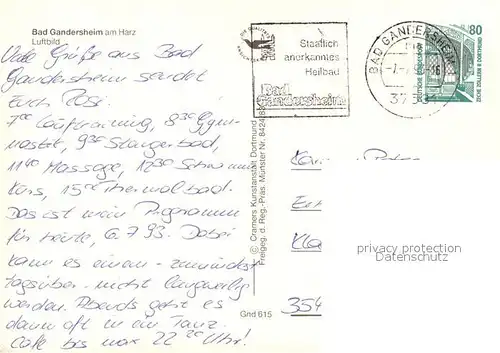 Bad Gandersheim am Harz
Luftbild
Viele Grüße aus Bad
Gandersheim sendet
Euch Rosi.
7⁰⁰ Lauftraining, 8³⁰ Gym-
nastik, 9³⁰ Stangerbad,
11⁴⁰ Massage, 12³⁰ Schwimm
Kurs, 15⁰⁰ Thermalbad.
Das ist mein Programm
für heute, 6.7.93. Dabei
kann es einem - zumindest
tagsüber - nicht langweilig
werden. Abends geht es
dann oft in ein Tanz
Café bis max 22 Uhr!
© Cramers Kunstanstalt Dortmund
Freigeg. d. Reg.-Präs. Münster Nr.
Gnd 615
Staatlich
anerkanntes
Heilbad
Bad
Gandersheim
BAD GANDERSHEIM
80
DEUTSCHE BUNDESPOST
ZECHE ZOLLERN II DORTMUND
354
privacy protection
Datenschutz